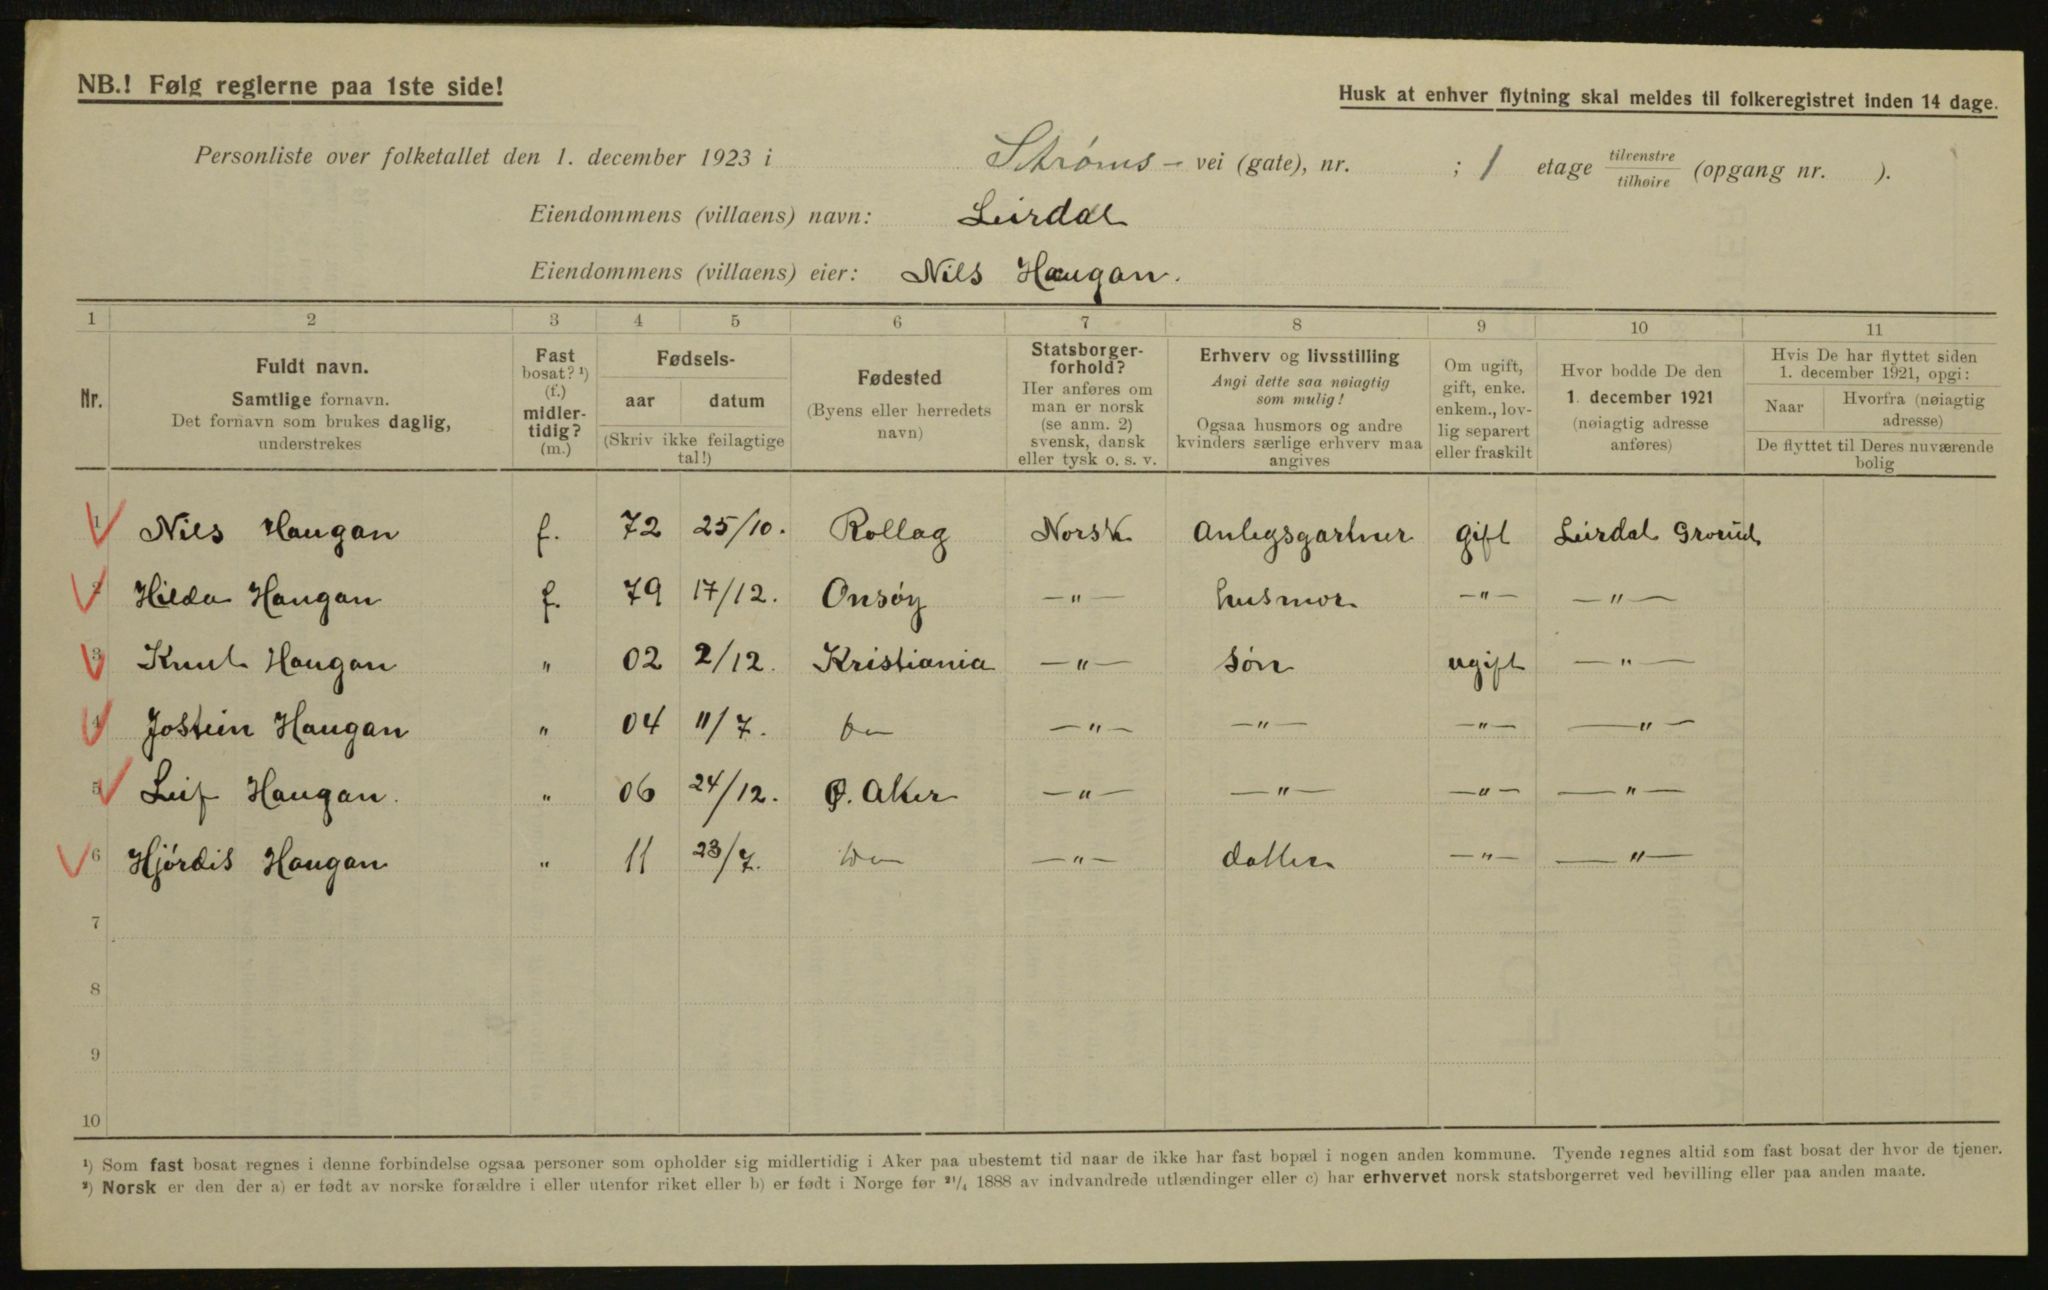 NB.! Følg reglerne paa 1ste side!
Husk at enhver flytning skal meldes til folkeregistret inden 14 dage.
Personliste over folketallet den 1. december 1923 i Strøms - vei (gate), nr. ; 1 etage tilvenstre/tilhøire (opgang nr. ).
Eiendommens (villaens) navn: Leirdal
Eiendommens (villaens) eier: Nils Haugan.
1 2 3 4 5 6 7 8 9 10 11
Nr.
Fuldt navn.
Samtlige fornavn.
Det fornavn som brukes daglig,
understrekes
Fast
bosat? ¹)
(f.)
midler-
tidig?
(m.)
Fødsels-
aar datum
(Skriv ikke feilagtige
tal!)
Fødested
(Byens eller herredets
navn)
Statsborger-
forhold?
Her anføres om
man er norsk
(se anm. 2)
svensk, dansk
eller tysk o. s. v.
Erhverv og livsstilling
Angi dette saa nøiagtig
som mulig!
Ogsaa husmors og andre
kvinders særlige erhverv maa
angives
Om ugift,
gift, enke.
enkem., lov-
lig separert
eller fraskilt
Hvor bodde De den
1. december 1921
(nøiagtig adresse
anføres)
Hvis De har flyttet siden
1. december 1921, opgi:
Naar
Hvorfra (nøiagtig
adresse)
De flyttet til Deres nuværende
bolig
1 Nils Haugan f. 72 25/10. Rollag Norsk Anlegsgartner gift Leirdal Grorud
2 Hilda Haugan f. 79 17/12. Onsöy —"— husmor —"— —"—
3 Knut Haugan " 02 2/12. Kristiania —"— søn ugift —"—
4 Jostein Haugan " 04 11/7. do —"— —"— —"— —"—
5 Leif Haugan. " 06 24/12. Ø. Aker —"— —"— —"— —"—
6 Hjördis Haugan " 11 23/7. do —"— datter —"— —"—
7
8
9
10
¹) Som fast bosat regnes i denne forbindelse ogsaa personer som opholder sig midlertidig i Aker paa ubestemt tid naar de ikke har fast bopæl i nogen anden kommune. Tyende regnes altid som fast bosat der hvor de tjener.
²) Norsk er den der a) er født av norske forældre i eller utenfor riket eller b) er født i Norge før ²¹/₄ 1888 av indvandrede utlændinger eller c) har erhvervet norsk statsborgerret ved bevilling eller paa anden maate.